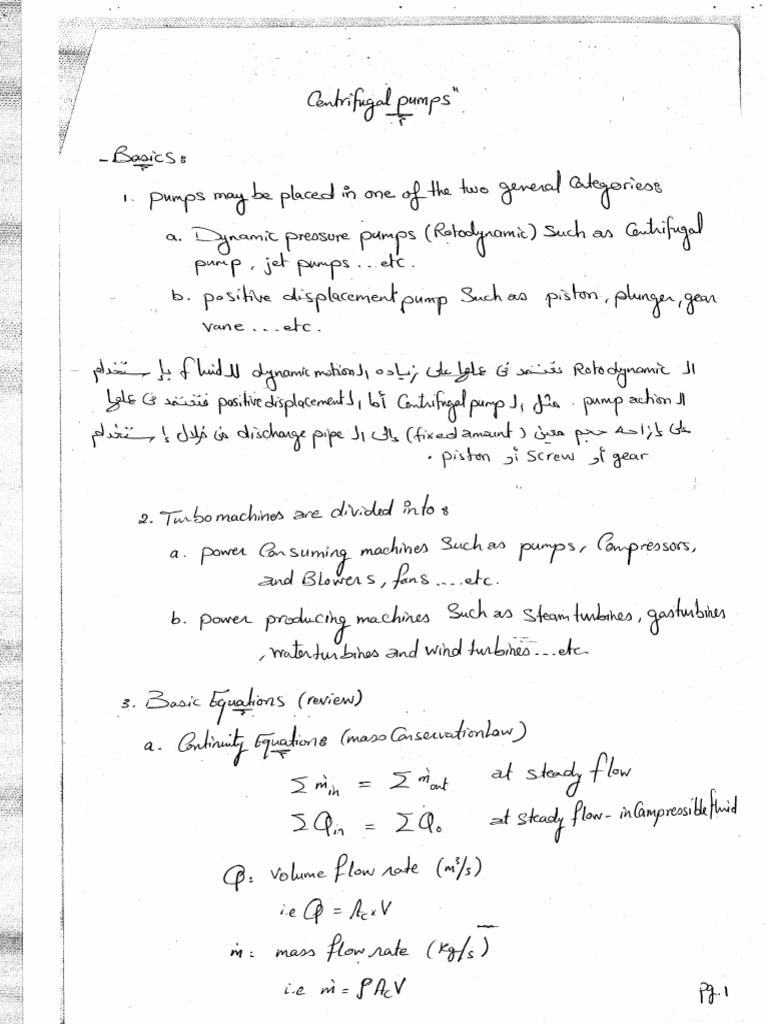 Centrifugal pumps"
- Basics:
1. pumps may be placed in one of the two general Categories:
a. Dynamic pressure pumps (Rotodynamic) Such as Centrifugal
pump, jet pumps ...etc.
b. positive displacement pump Such as piston, plunger, gear
vane ....etc.
الـ Rotodynamic تعتمد فى عملها على زياده الـ dynamic motion للـ fluid بإستخدام
الـ pump action . مثل الـ Centrifugal pump أما الـ positive displacement فتعتمد فى عملها
على إزاحه حجم معين (fixed amount) إلى الـ discharge pipe من خلال إستخدام
gear أو screw أو piston .
2. Turbomachines are divided into:
a. power Consuming machines Such as pumps, Compressors,
and Blowers, fans ....etc.
b. power producing machines Such as Steam turbines, gas turbines
, water turbines and wind turbines...etc.
3. Basic Equations (review)
a. Continuity Equations (mass Conservation Law)
Σ ṁin = Σ ṁout at steady flow
ΣQin = ΣQo at steady flow - inCompressible fluid
Q: Volume flow rate (m³/s)
i.e Q = Ac x V
ṁ: mass flow rate (Kg/s)
i.e ṁ = ρ Ac V
pg. 1